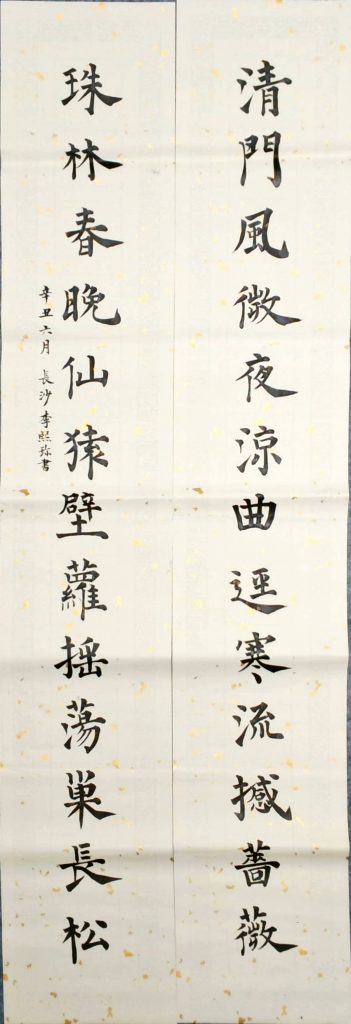 清門風微夜涼曲逕寒流撼薔薇
珠林春晚仙猿壁蘿搖蕩巢長松
辛丑六月 長沙李熙弥書